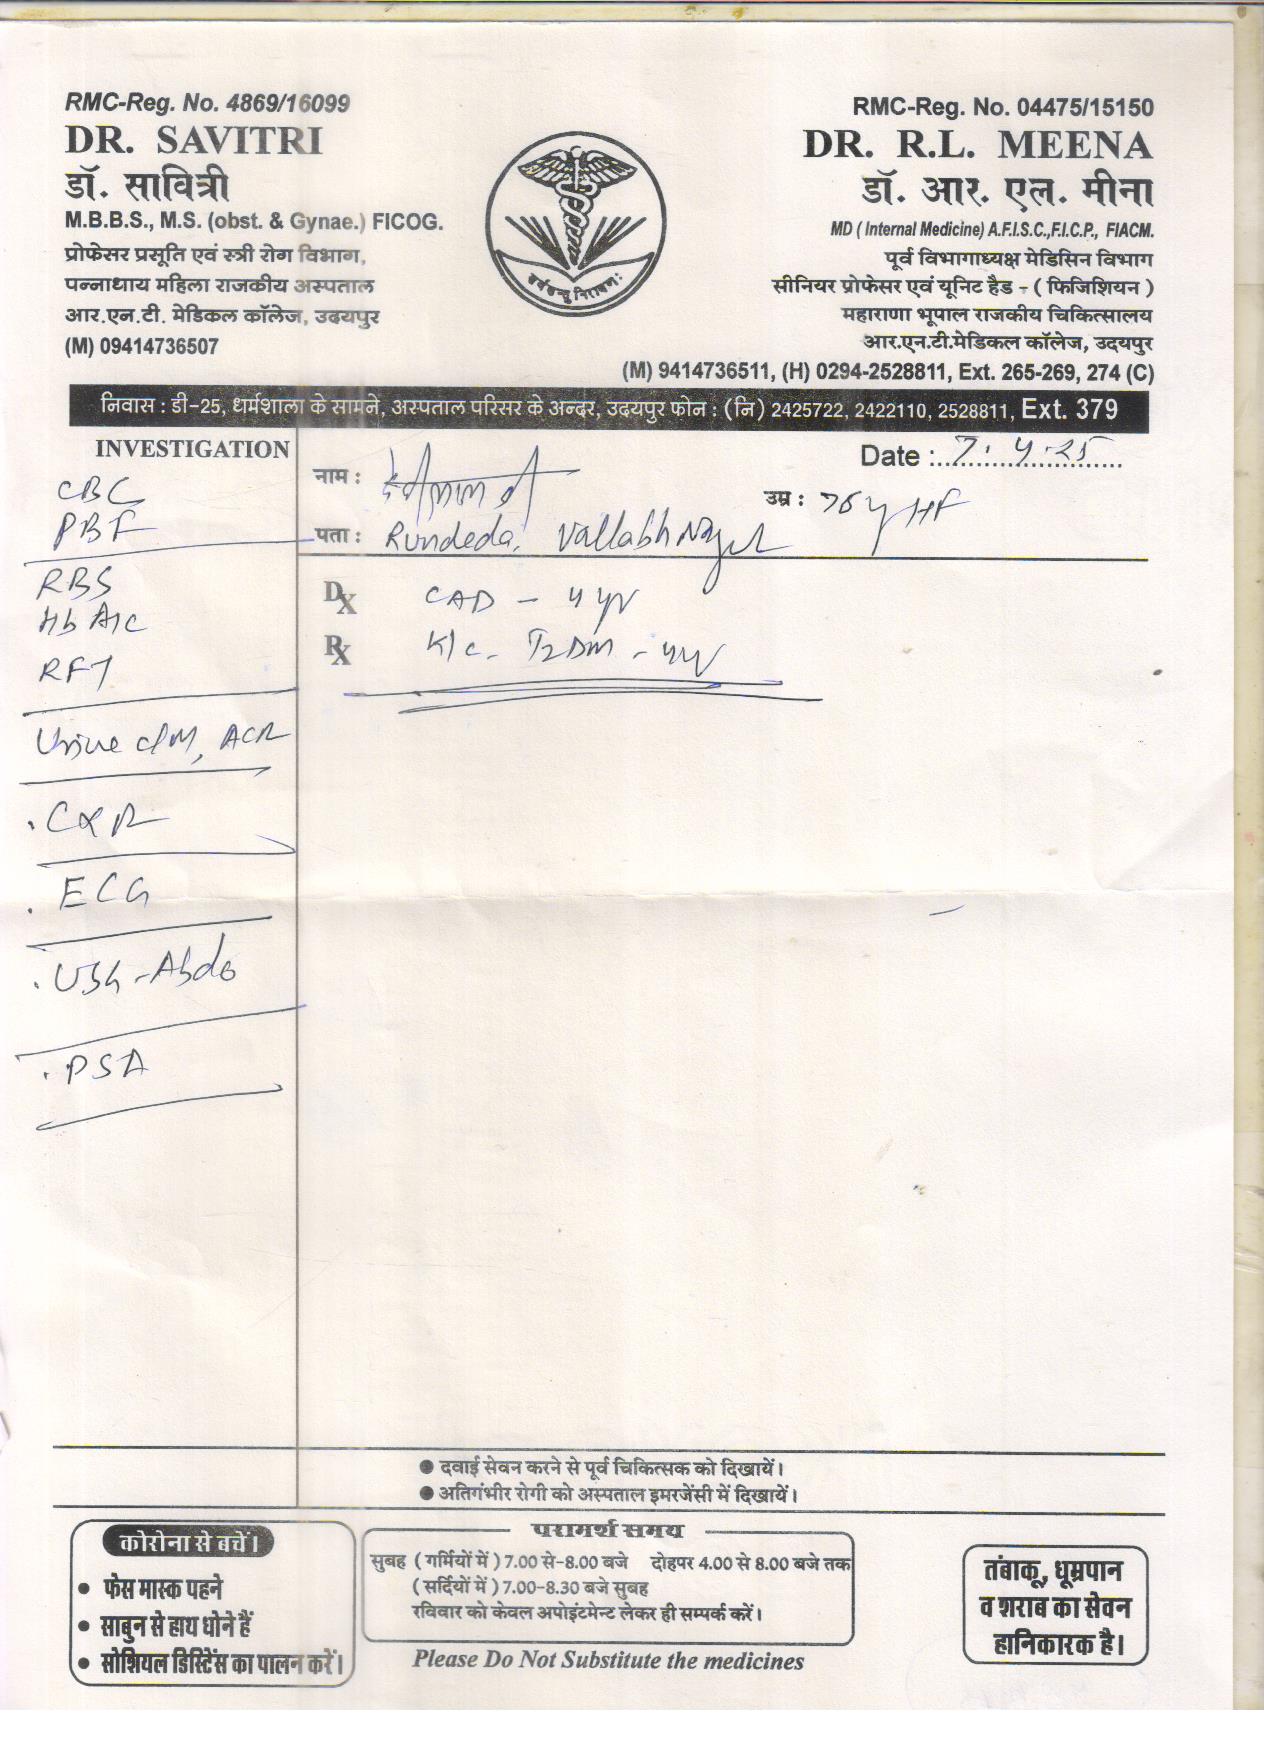 RMC-Reg. No. 4869/16099
DR. SAVITRI
डॉ. सावित्री
M.B.B.S., M.S. (obst. & Gynae.) FICOG.
प्रोफेसर प्रसूति एवं स्त्री रोग विभाग,
पन्नाधाय महिला राजकीय अस्पताल
आर.एन.टी. मेडिकल कॉलेज, उदयपुर
(M) 09414736507
RMC-Reg. No. 04475/15150
DR. R.L. MEENA
डॉ. आर. एल. मीना
MD ( Internal Medicine) A.F.I.S.C.,F.I.C.P., FIACM.
पूर्व विभागाध्यक्ष मेडिसिन विभाग
सीनियर प्रोफेसर एवं यूनिट हैड - ( फिजिशियन )
महाराणा भूपाल राजकीय चिकित्सालय
आर.एन.टी.मेडिकल कॉलेज, उदयपुर
(M) 9414736511, (H) 0294-2528811, Ext. 265-269, 274 (C)
निवास : डी-25, धर्मशाला के सामने, अस्पताल परिसर के अन्दर, उदयपुर फोन : (नि) 2425722, 2422110, 2528811, Ext. 379
INVESTIGATION
CBC
PBF
RBS
Hb A1c
RFT
Urine c/m, ACR
. CXR
. ECG
. USG - Abdo
. PSA
Date : 7.4.25
नाम :
उम्र : 76y
पता : Rundeda, Vallabh Nagar
Dx CAD - 4 yr
Rx K/c - T2DM - 4yr
● दवाई सेवन करने से पूर्व चिकित्सक को दिखायें।
● अतिगंभीर रोगी को अस्पताल इमरजेंसी में दिखायें।
कोरोना से बचें।
• फेस मास्क पहने
• साबुन से हाथ धोने हैं
• सोशियल डिस्टिेंस का पालन करें।
परामर्श समय
सुबह ( गर्मियों में ) 7.00 से-8.00 बजे दोहपर 4.00 से 8.00 बजे तक
( सर्दियों में ) 7.00-8.30 बजे सुबह
रविवार को केवल अपोइंटमेन्ट लेकर ही सम्पर्क करें।
Please Do Not Substitute the medicines
तंबाकू, धूम्रपान
व शराब का सेवन
हानिकारक है।